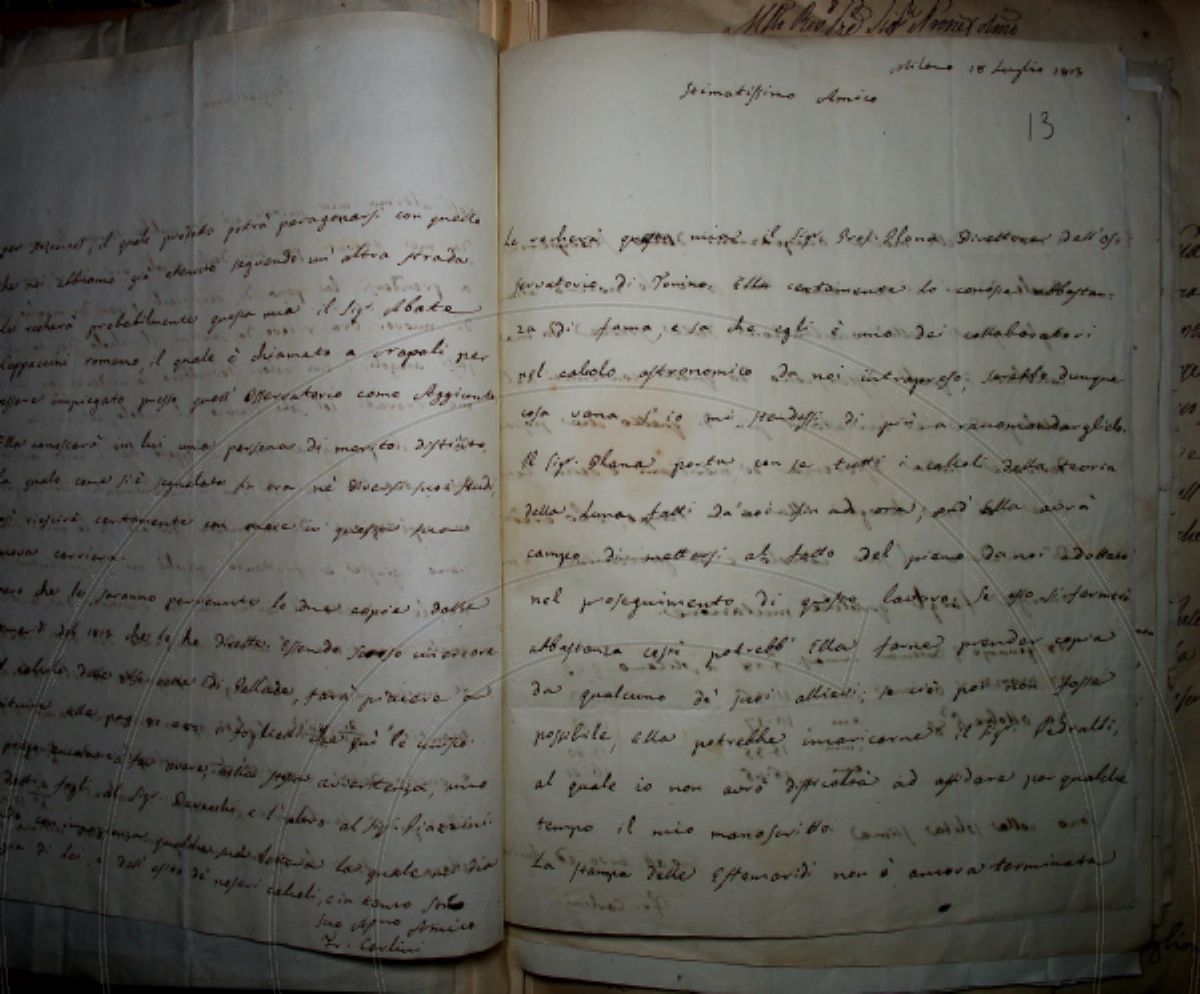 per mezzo, il quale prodotto potrà paragonarsi con quello
che noi abbiamo già ottenuto seguendo un'altra strada.
Le recherà probabilmente questa mia il Sigr. Abate
Cappaccini romano, il quale è chiamato a Napoli per
essere impiegato presso quell'Osservatorio come Aggiunto
Ella conoscerà in lui una persona di merito distinto,
la quale come si è segnalata fin ora ne' diversi suoi studi,
così riescirà certamente con onore in questa sua
nuova carriera.
che le saranno pervenute le due copie delle
del 1813 che le ho dirette. Essendo scorso un errore
calcolo delle effemeridi di Pallade, farà piacere a
alla pag. fogliett che qui le unisco.
avere, colla stessa avvertenza, uno
fogli al Sigr. e l'altro al Sigr. Piazzini.
con impazienza qualche sua lettera la quale mi dia
di lei, e dell'esito de' nostri calcoli, e in tanto sono
Suo Affmo Amico
Fr. Carlini
Milano 18 Luglio 1813
Stimatissimo Amico
13
Le recherà questa mia il Sigr. Prof. Plana Direttore dell'os-
servatorio di Torino. Ella certamente lo conosce abbastan-
za di fama, e sa che egli è uno dei collaboratori
nel calcolo astronomico da noi intrapreso; sarebbe dunque
cosa vana s'io mi stendessi di più a raccomandarglielo.
Il Sigr. Plana porta con se tutti i calcoli della teoria
della Luna fatti da noi fin ad ora, ond'Ella avrà
campo di mettersi al fatto del piano da noi adottato
nel proseguimento di questo lavoro. Se esso si fermerà
abbastanza costì potrebb'Ella farne prender copia
da qualcuno de' suoi allievi; se ciò poi non fosse
possibile, Ella potrebbe incaricarne il Sigr. Pedralli,
al quale io non avrò difficoltà ad affidare per qualche
tempo il mio manoscritto.
La stampa delle Effemeridi non è ancora terminata